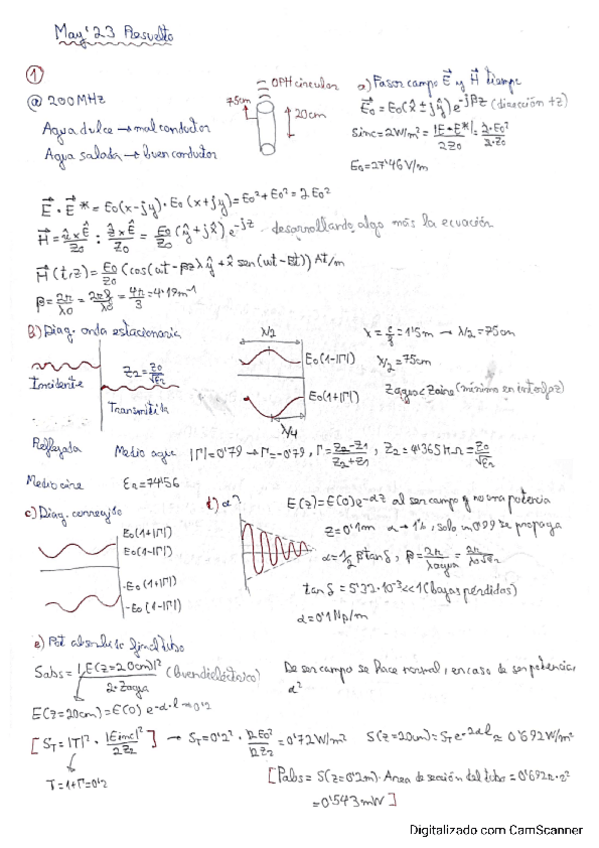 May'23 Resuelto
①
@ 200MHz
Agua dulce → mal conductor
Agua salada → buen conductor
OPH circular
75cm
20cm
a) Fasor campo E⃗ y H⃗ tiempo
E⃗o = Eo(x̂ ± jŷ) e^-jβz (dirección +z)
Sinc = 2W/m² = |E·E*|/2Zo = 2·Eo²/2·Zo
Eo = 27'46 V/m
E⃗ · E⃗* = Eo(x-jy) · Eo(x+jy) = Eo² + Eo² = 2Eo²
H⃗ = ẑxÊ/Zo : ẑxÊ/Zo = Eo/Zo (ŷ + jx̂) e^-jz - desarrollando algo más la ecuación
H⃗(t,z) = Eo/Zo (cos(ωt - βz) ŷ + x̂ sen(ωt - βz)) At/m
β = 2π/λo = 4π/3 = 4'19m⁻¹
b) Diag. onda estacionaria
Incidente
Z2 = Zo/√εr
Transmitida
Reflejada
λ/2
Eo(1-|Γ|)
Eo(1+|Γ|)
λ/4
λ = c/f = 1'5m → λ/2 = 75cm
λ/2 = 75cm
Zagua < Zaire (mínimo en interfaz)
Medio agua |Γ| = 0'79 → Γ = -0'79, Γ = Z2-Z1/Z2+Z1, Z2 = 4'365πΩ = Zo/√εr
Medio aire εr = 74'56
c) Diag. corregido
Eo(1+|Γ|)
Eo(1-|Γ|)
-Eo(1+|Γ|)
-Eo(1-|Γ|)
d) α?
E(z) = E(0) e^-αz al ser campo y no una potencia
Z = 0'1m α → 1%, solo un 0'99 se propaga
α = 1/2 β tanδ, β = 2π/λagua = 2π/λo √εr
tanδ = 5'32·10⁻³ << 1 (bajas pérdidas)
α = 0'1 Np/m
e) Pot absorbida final tubo
Sabs = |E(z=20cm)|²/2·Zagua (buen dieléctrico)
De ser campo se hace normal, en caso de ser potencia,
α²
E(z=20cm) = E(0) e^-α·l ≈ 0'2
[ST = |T|² · |Einc|²/2Z2] → ST = 0'2² · |2Eo²/2Z2 = 0'72W/m² S(z=20cm) = ST e^-2αl ≈ 0'692W/m²
T = 1+Γ = 0'2
[Pabs = S(z=0'2m) · Area de sección del tubo = 0'692π·r²
= 0'543mW]
Digitalizado com CamScanner